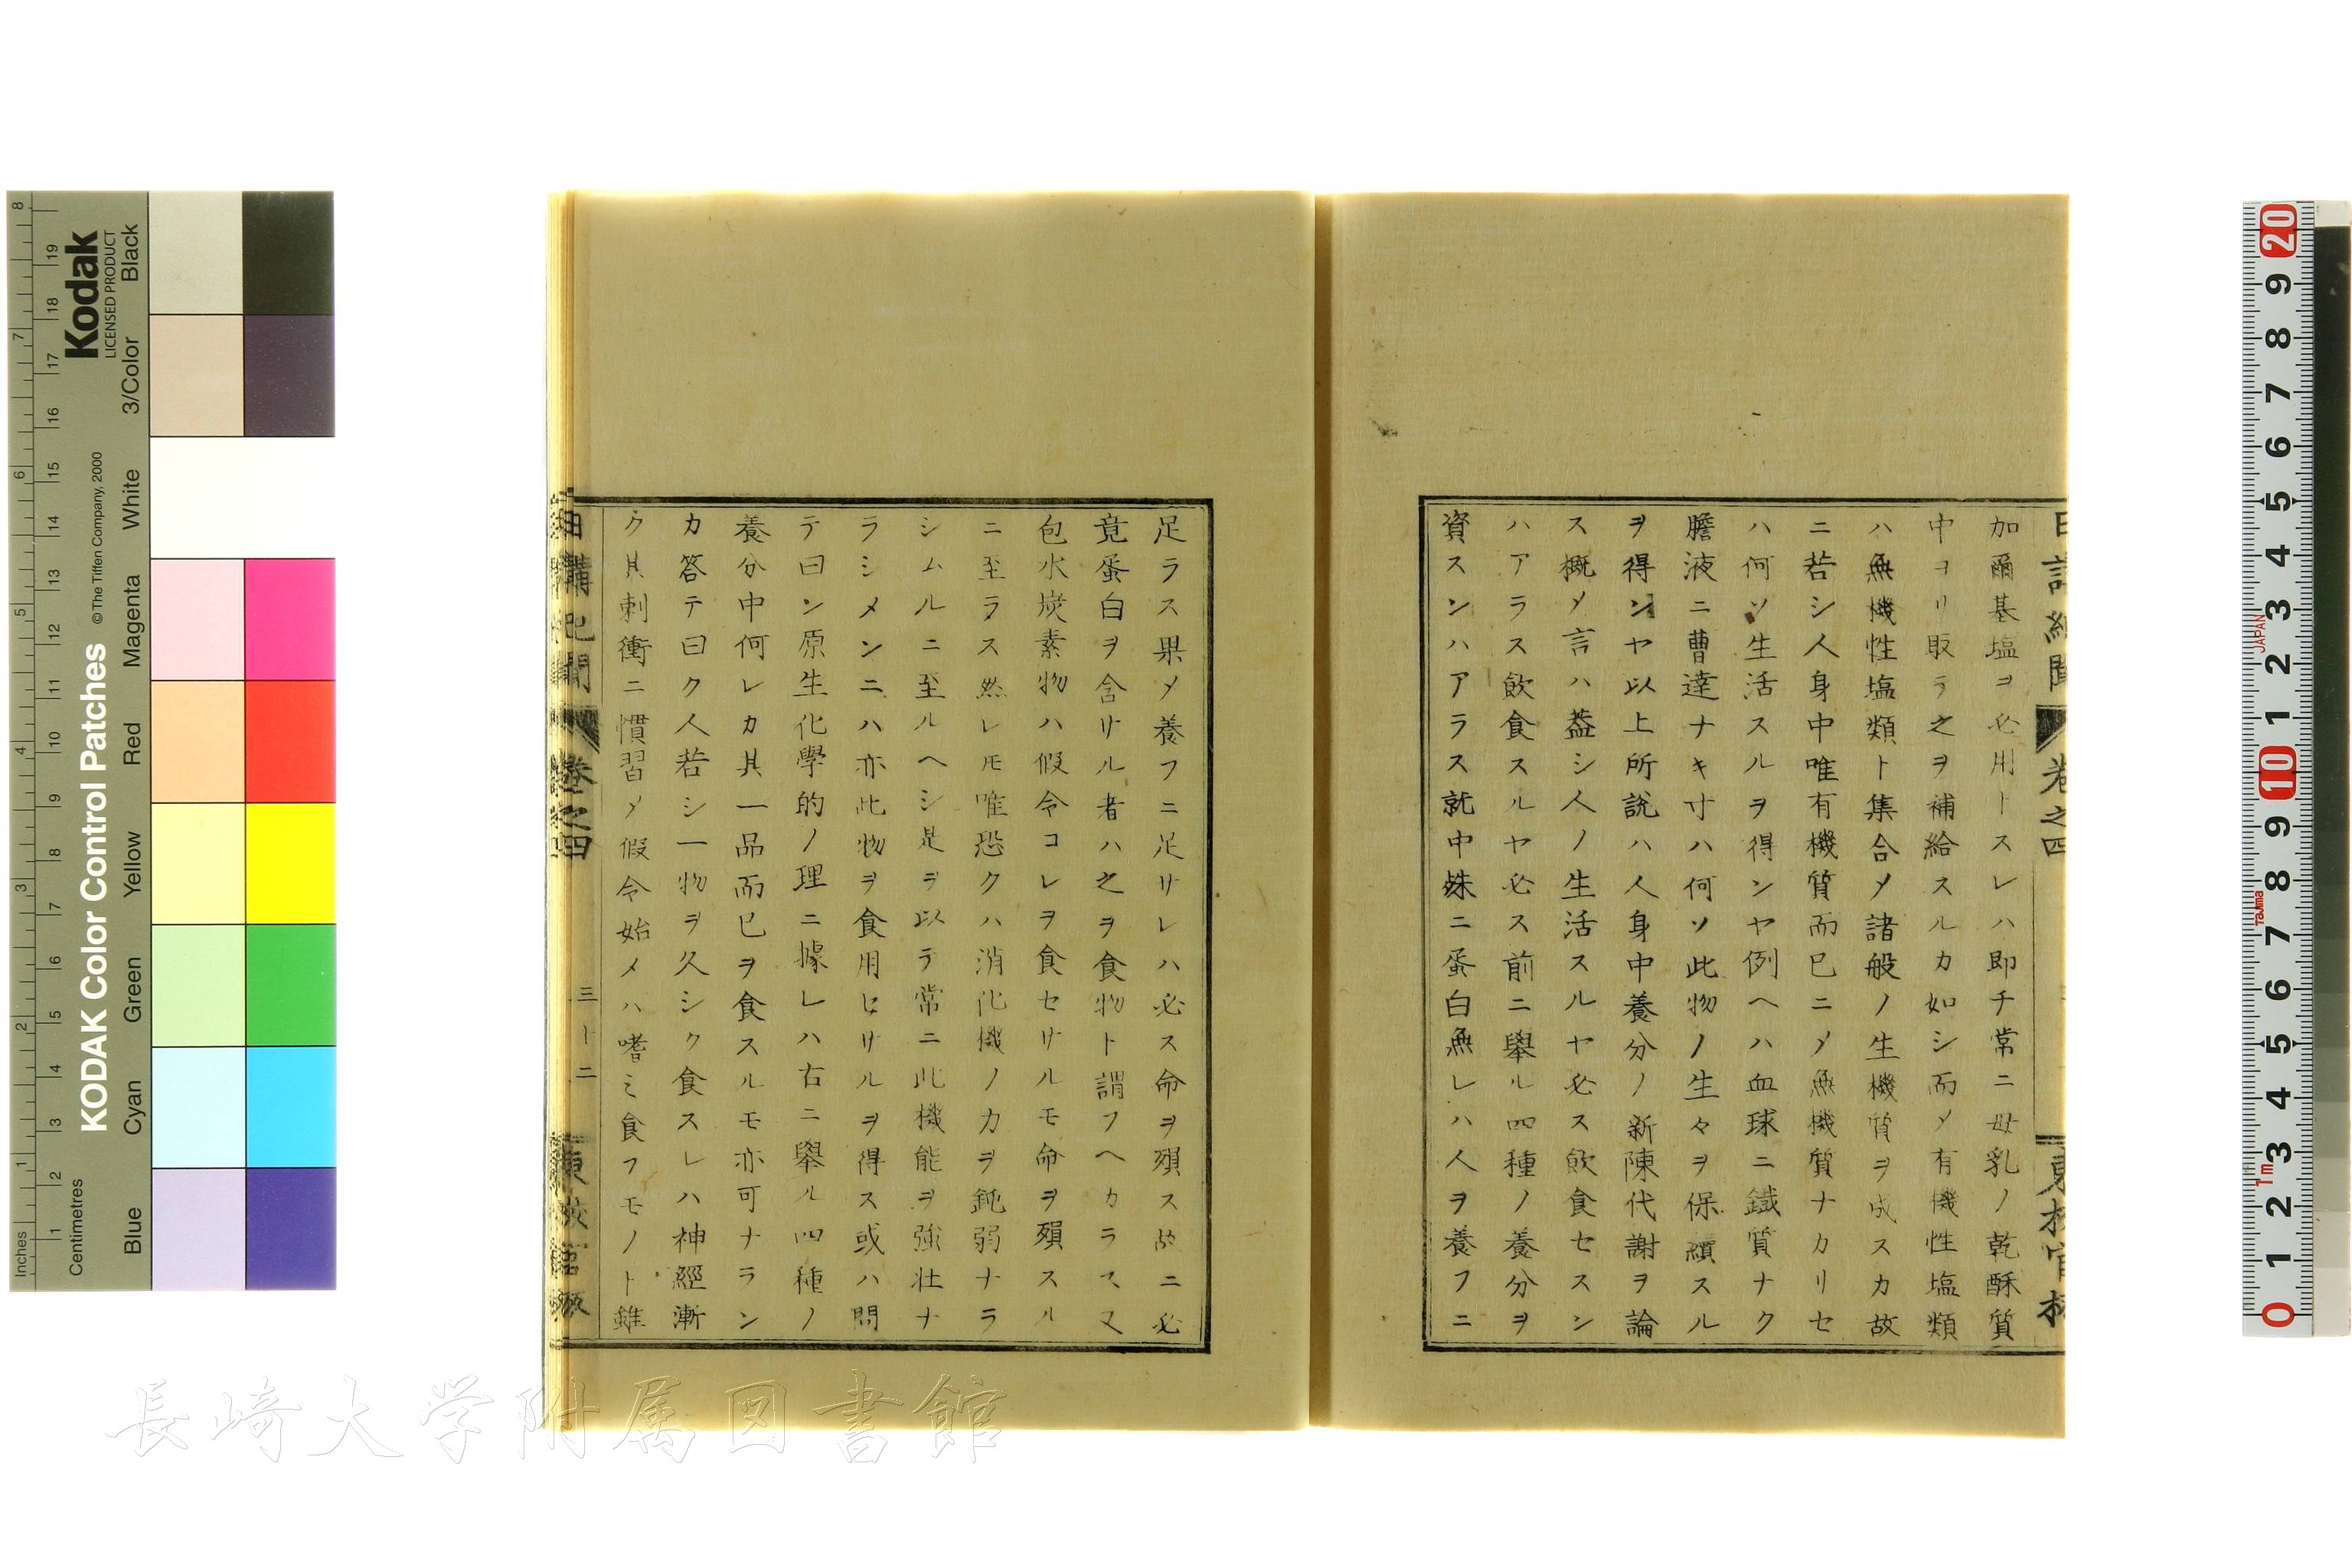 加爾基塩ヲ必用トスレハ即チ常ニ母乳ノ乾酥質
中ヨリ取テ之ヲ補給スルカ如シ而メ有機性塩類
ハ無機性塩類ト集合メ諸般ノ生機質ヲ成スカ故
ニ若シ人身中唯有機質而已ニメ無機質ナカリセ
ハ何ソ生活スルヲ得ンヤ例ヘハ血球ニ鐵質ナク
膽液ニ曹達ナキ寸ハ何ソ此物ノ生々ヲ保續スル
ヲ得ンヤ以上所說ハ人身中養分ノ新陳代謝ヲ論
ス概メ言ハ葢シ人ノ生活スルヤ必ス飲食セスン
ハアラス飲食スルヤ必ス前ニ擧ル四種ノ養分ヲ
資スンハアラス就中殊ニ蛋白無レハ人ヲ養フニ
足ラス果メ養フニ足サレハ必ス命ヲ殞ス故ニ必
竟蛋白ヲ含サル者ハ之ヲ食物ト謂フヘカラス又
包水炭素物ハ假令コレヲ食セサルモ命ヲ殞スル
ニ至ラス然レモ唯恐クハ消化機ノ力ヲ鈍弱ナラ
シムルニ至ルヘシ是ヲ以テ常ニ此機能ヲ強壮ナ
ラシメンニハ亦此物ヲ食用セサルヲ得ス或ハ問
テ曰ン原生化學的ノ理ニ據レハ右ニ擧ル四種ノ
養分中何レカ其一品而已ヲ食スルモ亦可ナラン
カ答テ曰ク人若シ一物ヲ久シク食スレハ神經漸
ク其刺衝ニ慣習メ假令始メハ嗜ミ食フモノト雖
日講紀聞 卷之四 三十二
長崎大学附属図書館
KODAK Color Control Patches
©The Tiffen Company, 2000
Kodak
LICENSED PRODUCT
Inches 1 2 3 4 5 6 7 8
Centimetres 1 2 3 4 5 6 7 8 9 10 11 12 13 14 15 16 17 18 19
Blue Cyan Green Yellow Red Magenta White 3/Color Black
0 1 2 3 4 5 6 7 8 9 10 1 2 3 4 5 6 7 8 9 20
1m Tajima JAPAN